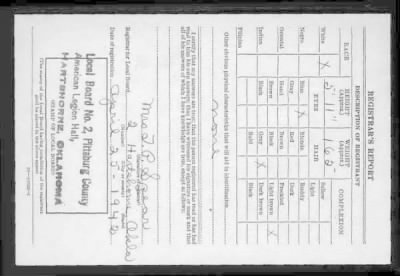 REGISTRAR'S REPORT
DESCRIPTION OF REGISTRANT
RACE
HEIGHT
(Approx.)
WEIGHT
(Approx.)
COMPLEXION
5' 11"
162
EYES
HAIR
White X
Negro
Oriental
Indian
Filipino
Blue X
Gray
Hazel
Brown
Black
Blonde
Red
Brown
Black
Gray X
Bald
Sallow
Light
Ruddy
Dark
Freckled
Light brown X
Dark brown
Black
Other obvious physical characteristics that will aid in identification
none
I certify that my answers are true; that the person registered has read or has had
read to him his own answers; that I have witnessed his signature or mark and that
all of his answers of which I have knowledge are true, except as follows:
Registrar for Local Board 2 Hartshorne Okla
Date of registration April 25-1942
Local Board No. 2, Pittsburg County
American Legion Hall,
HARTSHORNE, OKLAHOMA
(STAMP OF LOCAL BOARD)